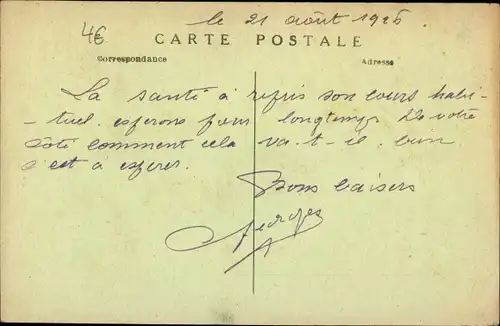 4€
le 21 août 1925
CARTE POSTALE
Correspondance
Adresse
La santé a repris son cours habi-
-tuel. esperons pour longtemps De votre
côté comment cela va-t-il. bien
c'est à esperer.
Bons baisers
Georges